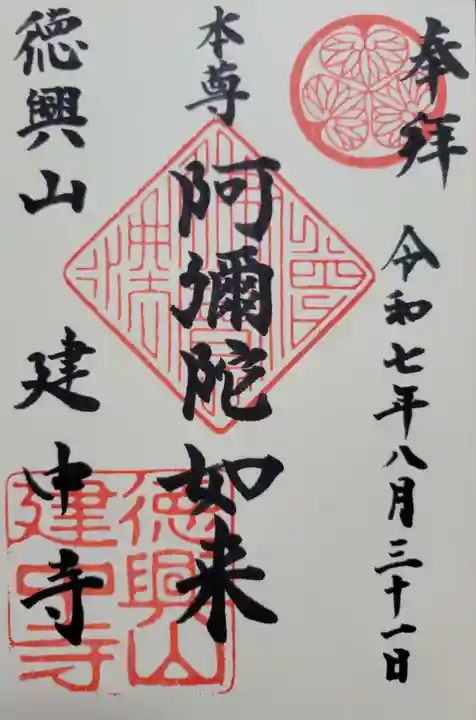 奉拝
令和七年八月三十一日
本尊
阿彌陀如来
徳興山 建中寺
徳興山
建中寺